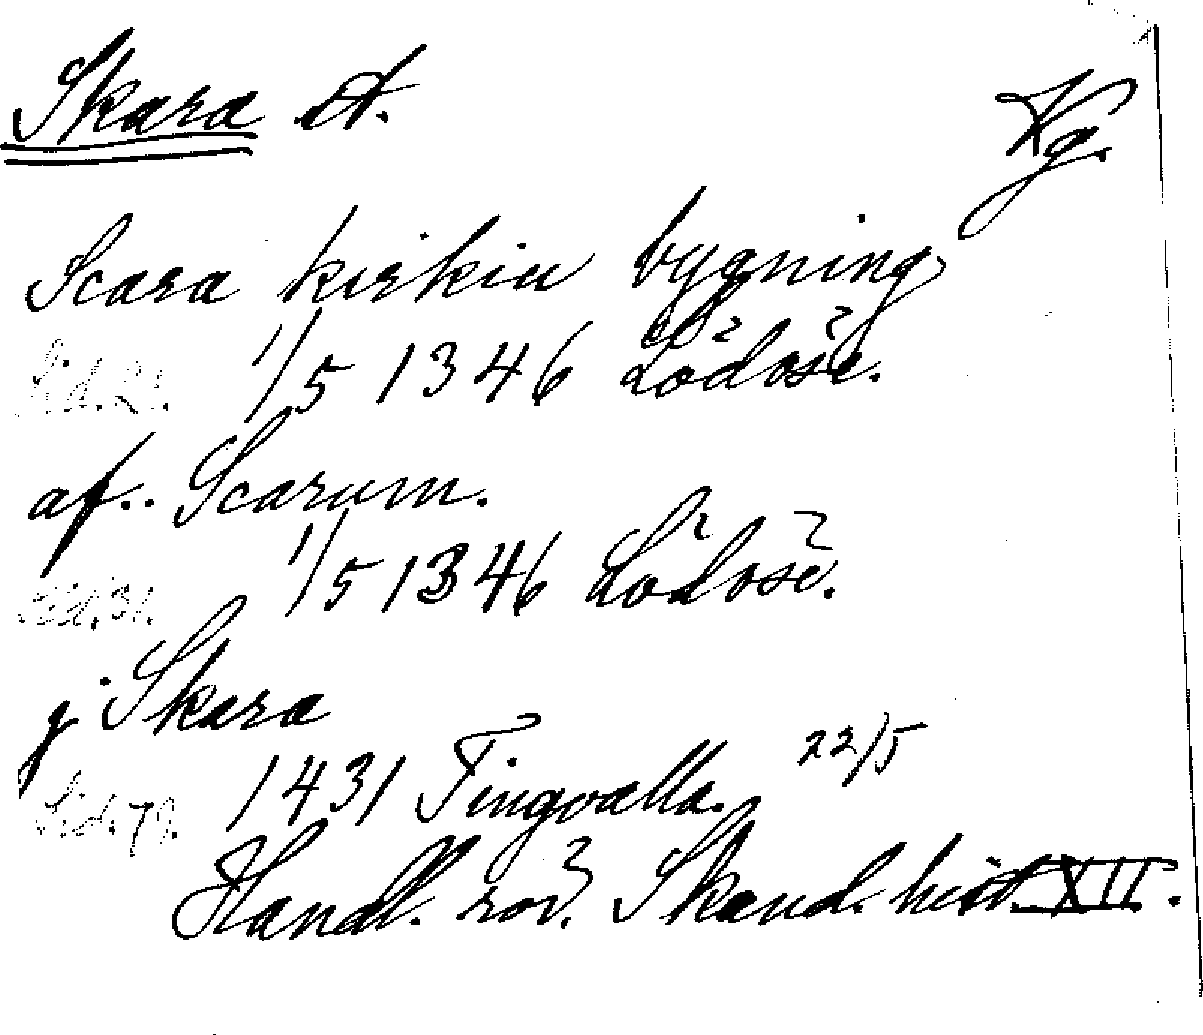 Skara st. Kg.
Scara kirkiu bygning
Sid. 21. 1/5 1346 Lödöse.
af.. Scarum.
Sid. 31. 1/5 1346 Lödöse.
j Skara
Sid. 79. 1431 Tingvalla. 22/5
Handl. rör. Skand. hist. XII.